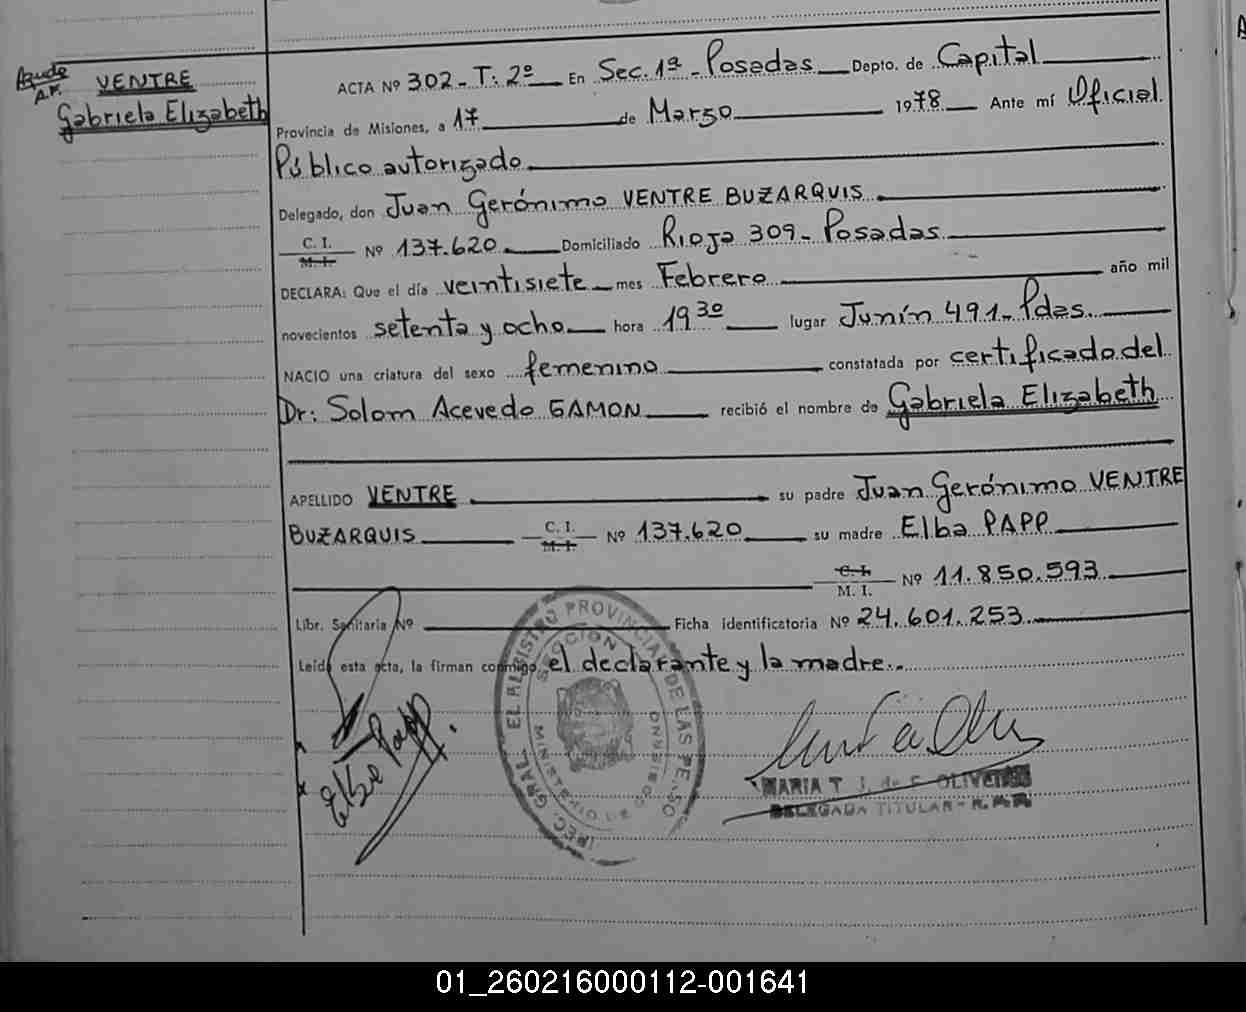 VENTRE
Gabriela Elizabeth
ACTA Nº 302-T: 2º En Sec. 1ª - Posadas Depto. de Capital
Provincia de Misiones, a 17 de Marzo 1978 Ante mí Oficial
Público autorizado
Delegado, don Juan Gerónimo VENTRE BUZARQUIS
C. I.
M. I. Nº 137.620 Domiciliado Rioja 309 - Posadas
DECLARA: Que el día veintisiete mes Febrero año mil
novecientos setenta y ocho hora 19 30 lugar Junín 491 - Pdas.
NACIO una criatura del sexo femenino constatada por certificado del
Dr: Solom Acevedo GAMON recibió el nombre de Gabriela Elizabeth
APELLIDO VENTRE su padre Juan Gerónimo VENTRE
BUZARQUIS C. I. M. I. Nº 137.620 su madre Elba PAPP
C. I.
M. I. Nº 11.850.593
Libr. Sanitaria Nº Ficha identificatoria Nº 24.601.253
Leída esta acta, la firman conmigo el declarante y la madre.-
Elba Papp.
GRAL. EL REGISTRO PROVINCIAL DE LAS PE.SO
SECCION
MINISTERIO DE GOBIERNO
MARIA T. J. de F. OLIVEIRA
DELEGADA TITULAR - R.P.P.
01_260216000112-001641